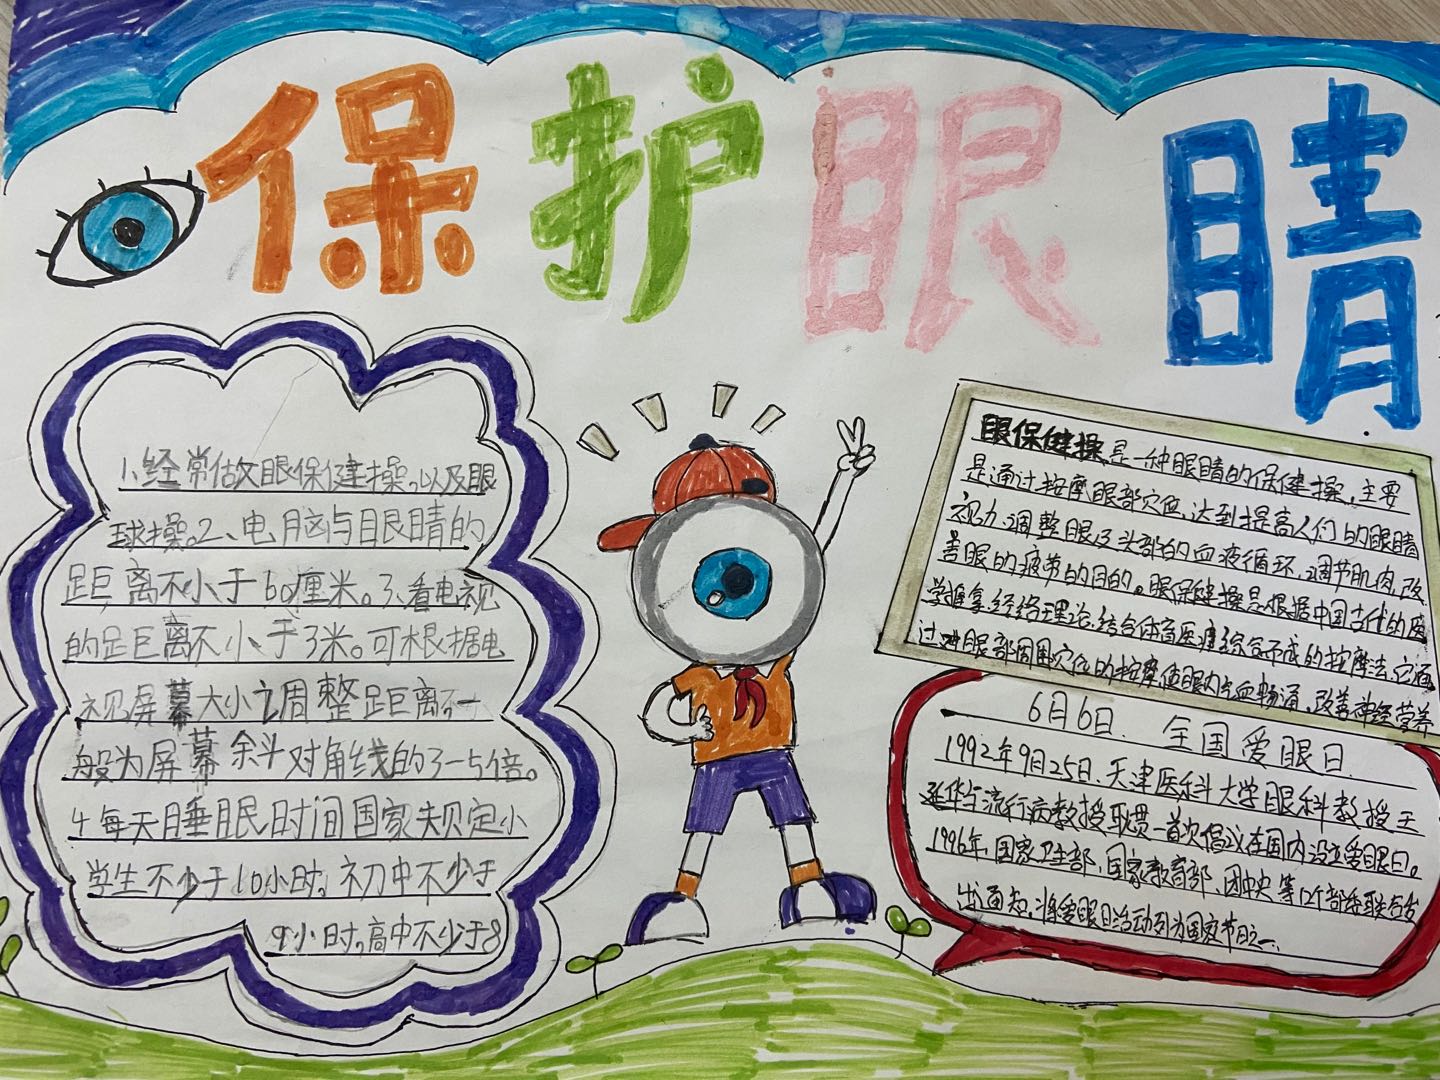 保护眼睛
1、经常做眼保健操。以及眼
球操。2、电脑与目艮睛的
距离不小于60厘米。3、看电视
的足距离不小于3米。可根据电
视屏幕大小调整距离
般为屏幕 余斗对角线的3—5倍。
4每天睡眠时间国家规定小
学生不少于10小时。初中不少于
9小时。高中不少于8
眼保健操是一种眼睛的保健操,主要
是通过按摩眼部穴位,达到提高人们的眼睛
视力、调整眼及头部的血液循环,调节肌肉,改
善眼的疲劳的目的。眼保健操是根据中国古代的医
经络理论,结合体育医疗综合而成的按摩法,它通
过对眼部周围穴位的按摩使眼内气血畅通,改善神经营养
6月6日、全国爱眼日
1992年9月25日、天津医科大学眼科教授王
延华与流行病教授耿贯一首次倡议在国内设立爱眼日。
1996年,国家卫生部、国家教育部、团中央等12个部委联合发
出通知,将爱眼日活动列为国家节日之一、